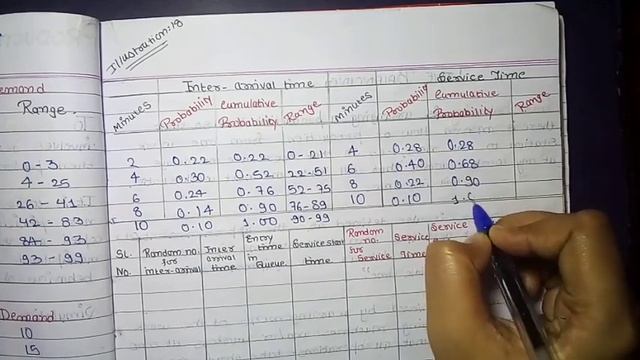 Illustration:18
emand
Range
0-3
4-25
26-41
42-83
84-93
93-99
Demand
10
15
Inter-arrival time Service Time
Minutes Probability Cumulative Probability Range Minutes Probability Cumulative Probability Range
2 0.22 0.22 0-21 4 0.28 0.28
4 0.30 0.52 22-51 6 0.40 0.68
6 0.24 0.76 52-75 8 0.22 0.90
8 0.14 0.90 76-89 10 0.10 1.0
10 0.10 1.00 90-99
SL. No. Random no. for inter-arrival Inter arrival time Entry time in Queue Service start time Random no. for Service Service Time Service